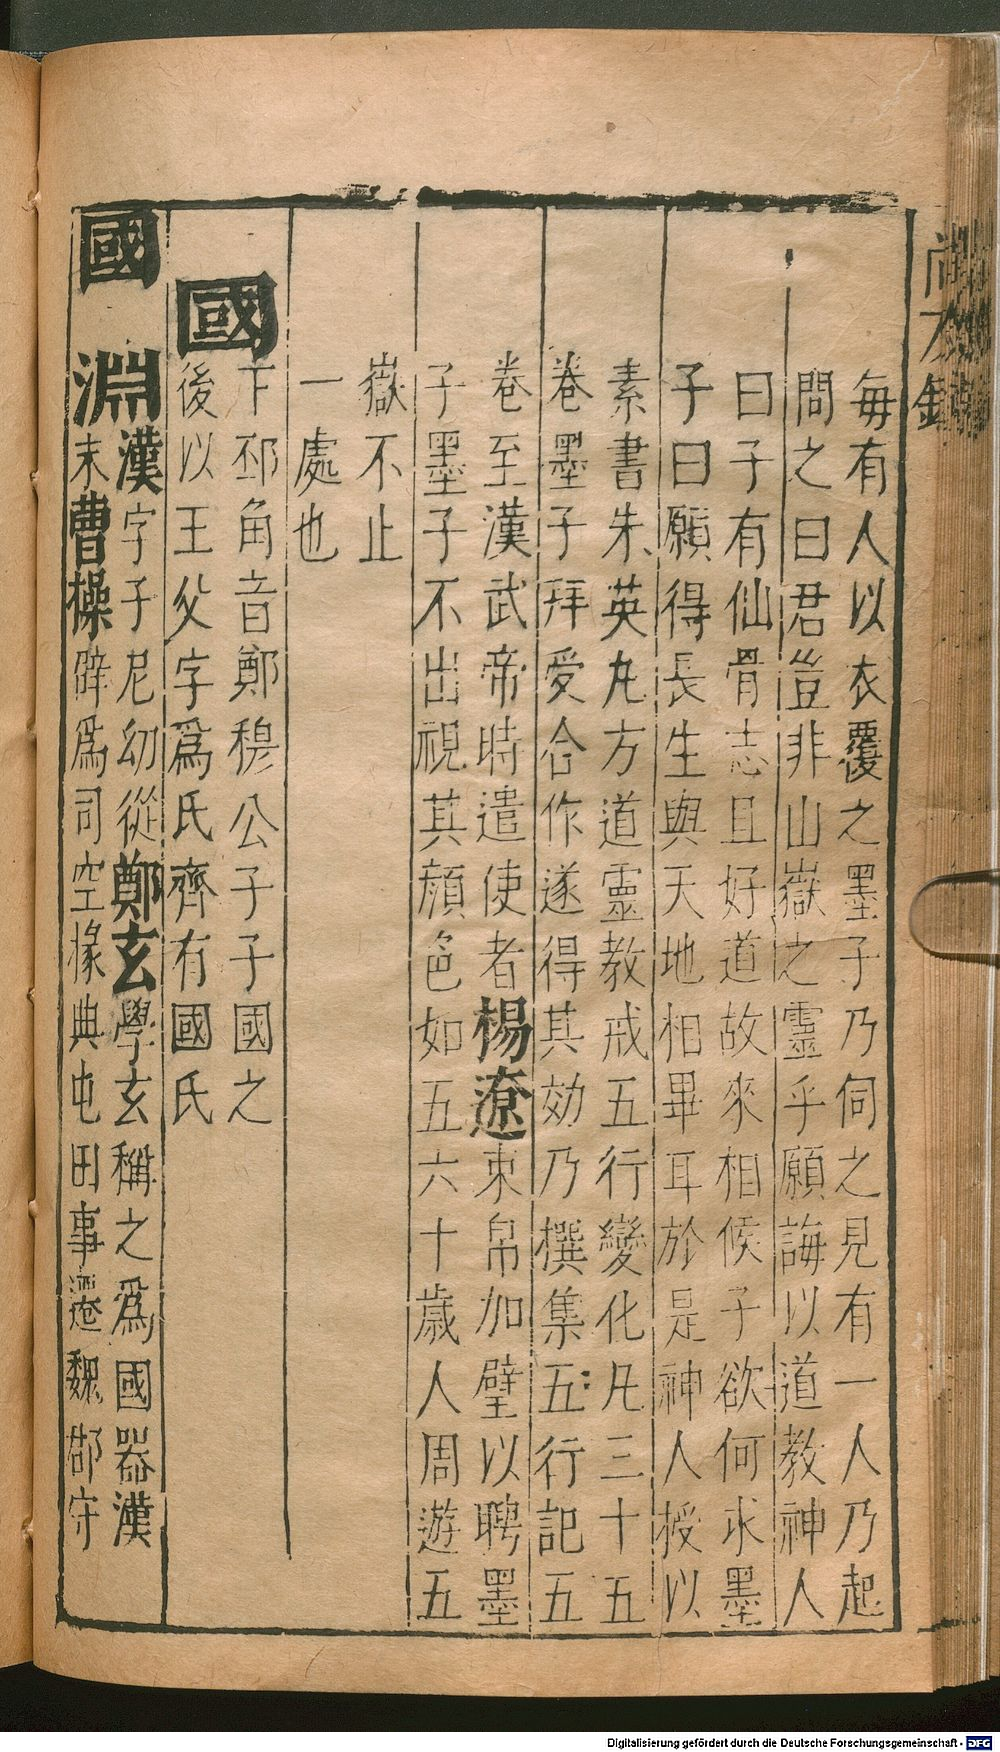 每有人以衣覆之墨子乃伺之見有一人乃起
問之曰君豈非山嶽之靈乎願誨以道教神人
曰子有仙骨志且好道故來相候子欲何求墨
子曰願得長生與天地相畢耳於是神人授以
素書朱英丸方道靈教戒五行變化凡三十五
卷墨子拜受合作遂得其効乃撰集五行記五
卷至漢武帝時遣使者楊遼束帛加璧以聘墨
子墨子不出視其顏色如五六十歲人周遊五
嶽不止
一處也
國
下邳角音鄭穆公子子國之
後以王父字爲氏齊有國氏
國淵
漢字子尼幼從鄭玄學玄稱之爲國器漢
末曹操辟爲司空掾典屯田事遷魏郡守
Digitalisierung gefördert durch die Deutsche Forschungsgemeinschaft - DFG